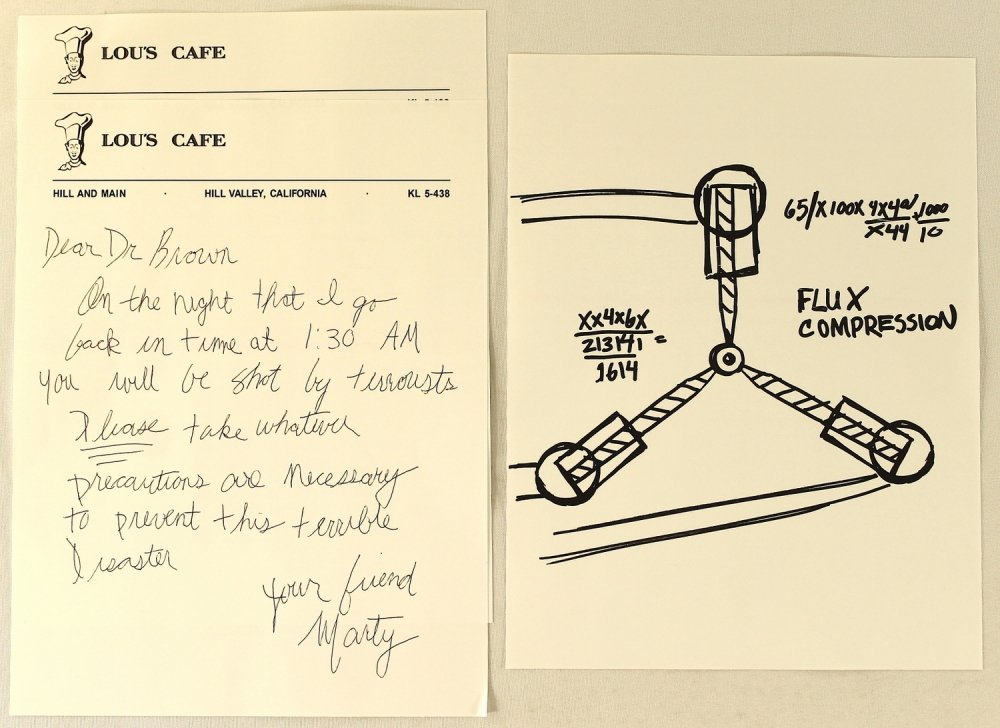 LOU'S CAFE
LOU'S CAFE
HILL AND MAIN · HILL VALLEY, CALIFORNIA · KL 5-438
Dear Dr Brown
On the night that I go
back in time at 1:30 AM
you will be shot by terrorists
Please take whatever
precautions are necessary
to prevent this terrible
disaster
Your friend
Marty
65/x100x
1000
10
FLUX
COMPRESSION
Xx4x6x
213141 =
1614